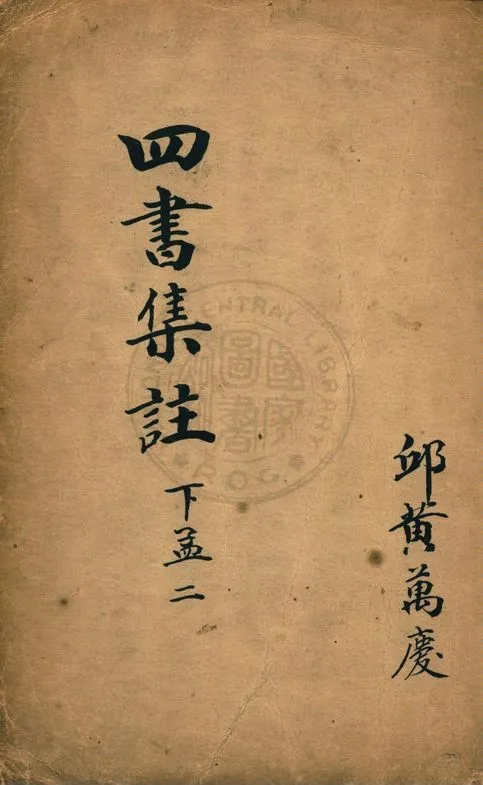 邱黃萬慶
四書集註
下孟二
CENTRAL LIBRARY
國家圖書
R.O.C